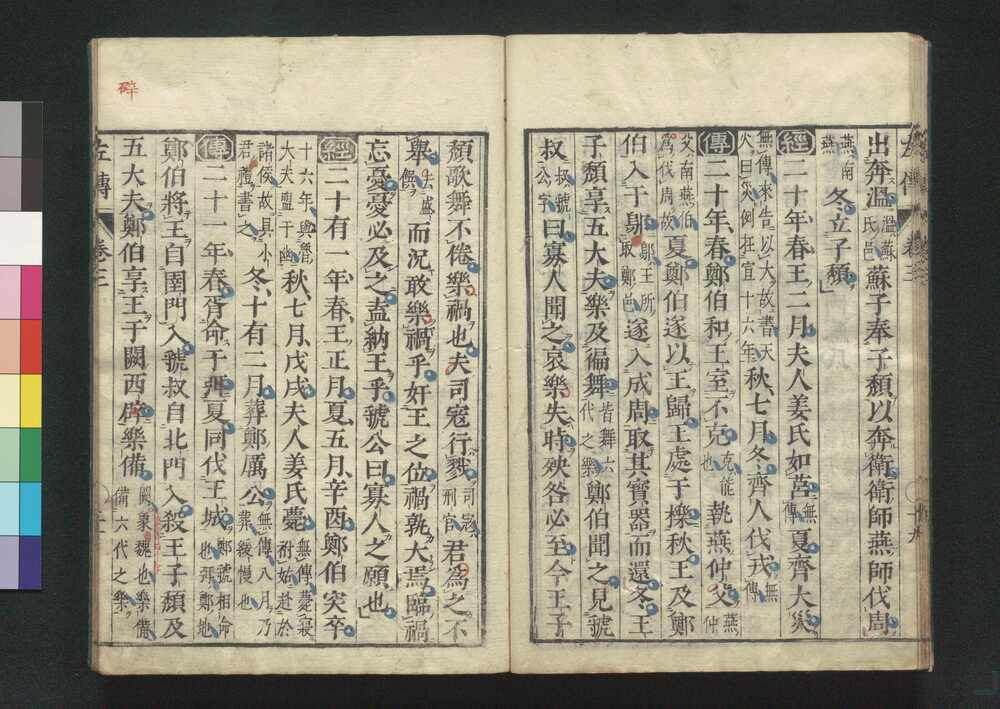 出奔温温蘇氏邑蘇子奉子頹以奔衛衛師燕師伐周
燕南燕冬立子頹
經二十年春王二月夫人姜氏如莒無傳夏齊大災
無傳來告以大故書天火曰災例在宣十六年秋七月冬齊人伐戎無傳
傳二十年春鄭伯和王室不克克能也執燕仲父燕仲
父南燕伯爲伐周故夏鄭伯遂以王歸王處于櫟秋王及鄭
伯入于鄔鄔王所取鄭邑遂入成周取其寶器而還冬王
子頹享五大夫樂及徧舞皆舞六代之樂鄭伯聞之見虢
叔叔虢公字曰寡人聞之哀樂失時殃咎必至今王子
左傳 卷三 十九
頹歌舞不倦樂禍也夫司寇行戮司寇刑官君爲之不
舉去盛饌而況敢樂禍乎奸王之位禍孰大焉臨禍
忘憂憂必及之盍納王乎虢公曰寡人之願也
經二十有一年春王正月夏五月辛酉鄭伯突卒
十六年與魯大夫盟于幽秋七月戊戌夫人姜氏薨無傳薨寢祔姑赴於
諸侯故具小君禮書之冬十有二月葬鄭厲公無傳八月乃葬緩慢也
傳二十一年春胥命于弭夏同伐王城鄭虢相命也弭鄭地
鄭伯將王自圉門入虢叔自北門入殺王子頹及
五大夫鄭伯享王于闕西辟樂備闕象魏也樂備備六代之樂
左傳 卷三